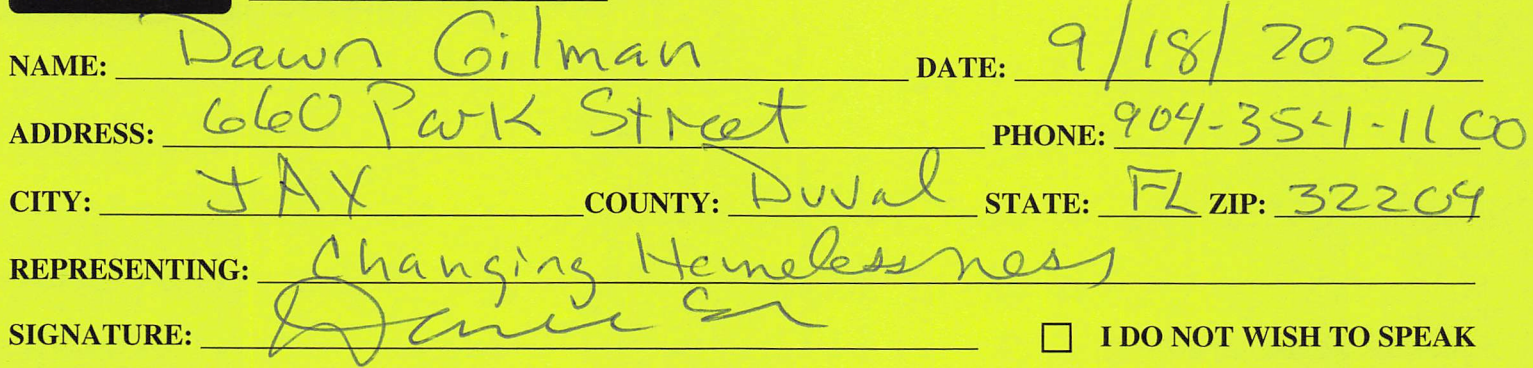 NAME: Dawn Gilman DATE: 9/18/2023
ADDRESS: 660 Park Street PHONE: 904-354-1100
CITY: JAX COUNTY: Duval STATE: FL ZIP: 32204
REPRESENTING: Changing Homelessness
SIGNATURE: I DO NOT WISH TO SPEAK